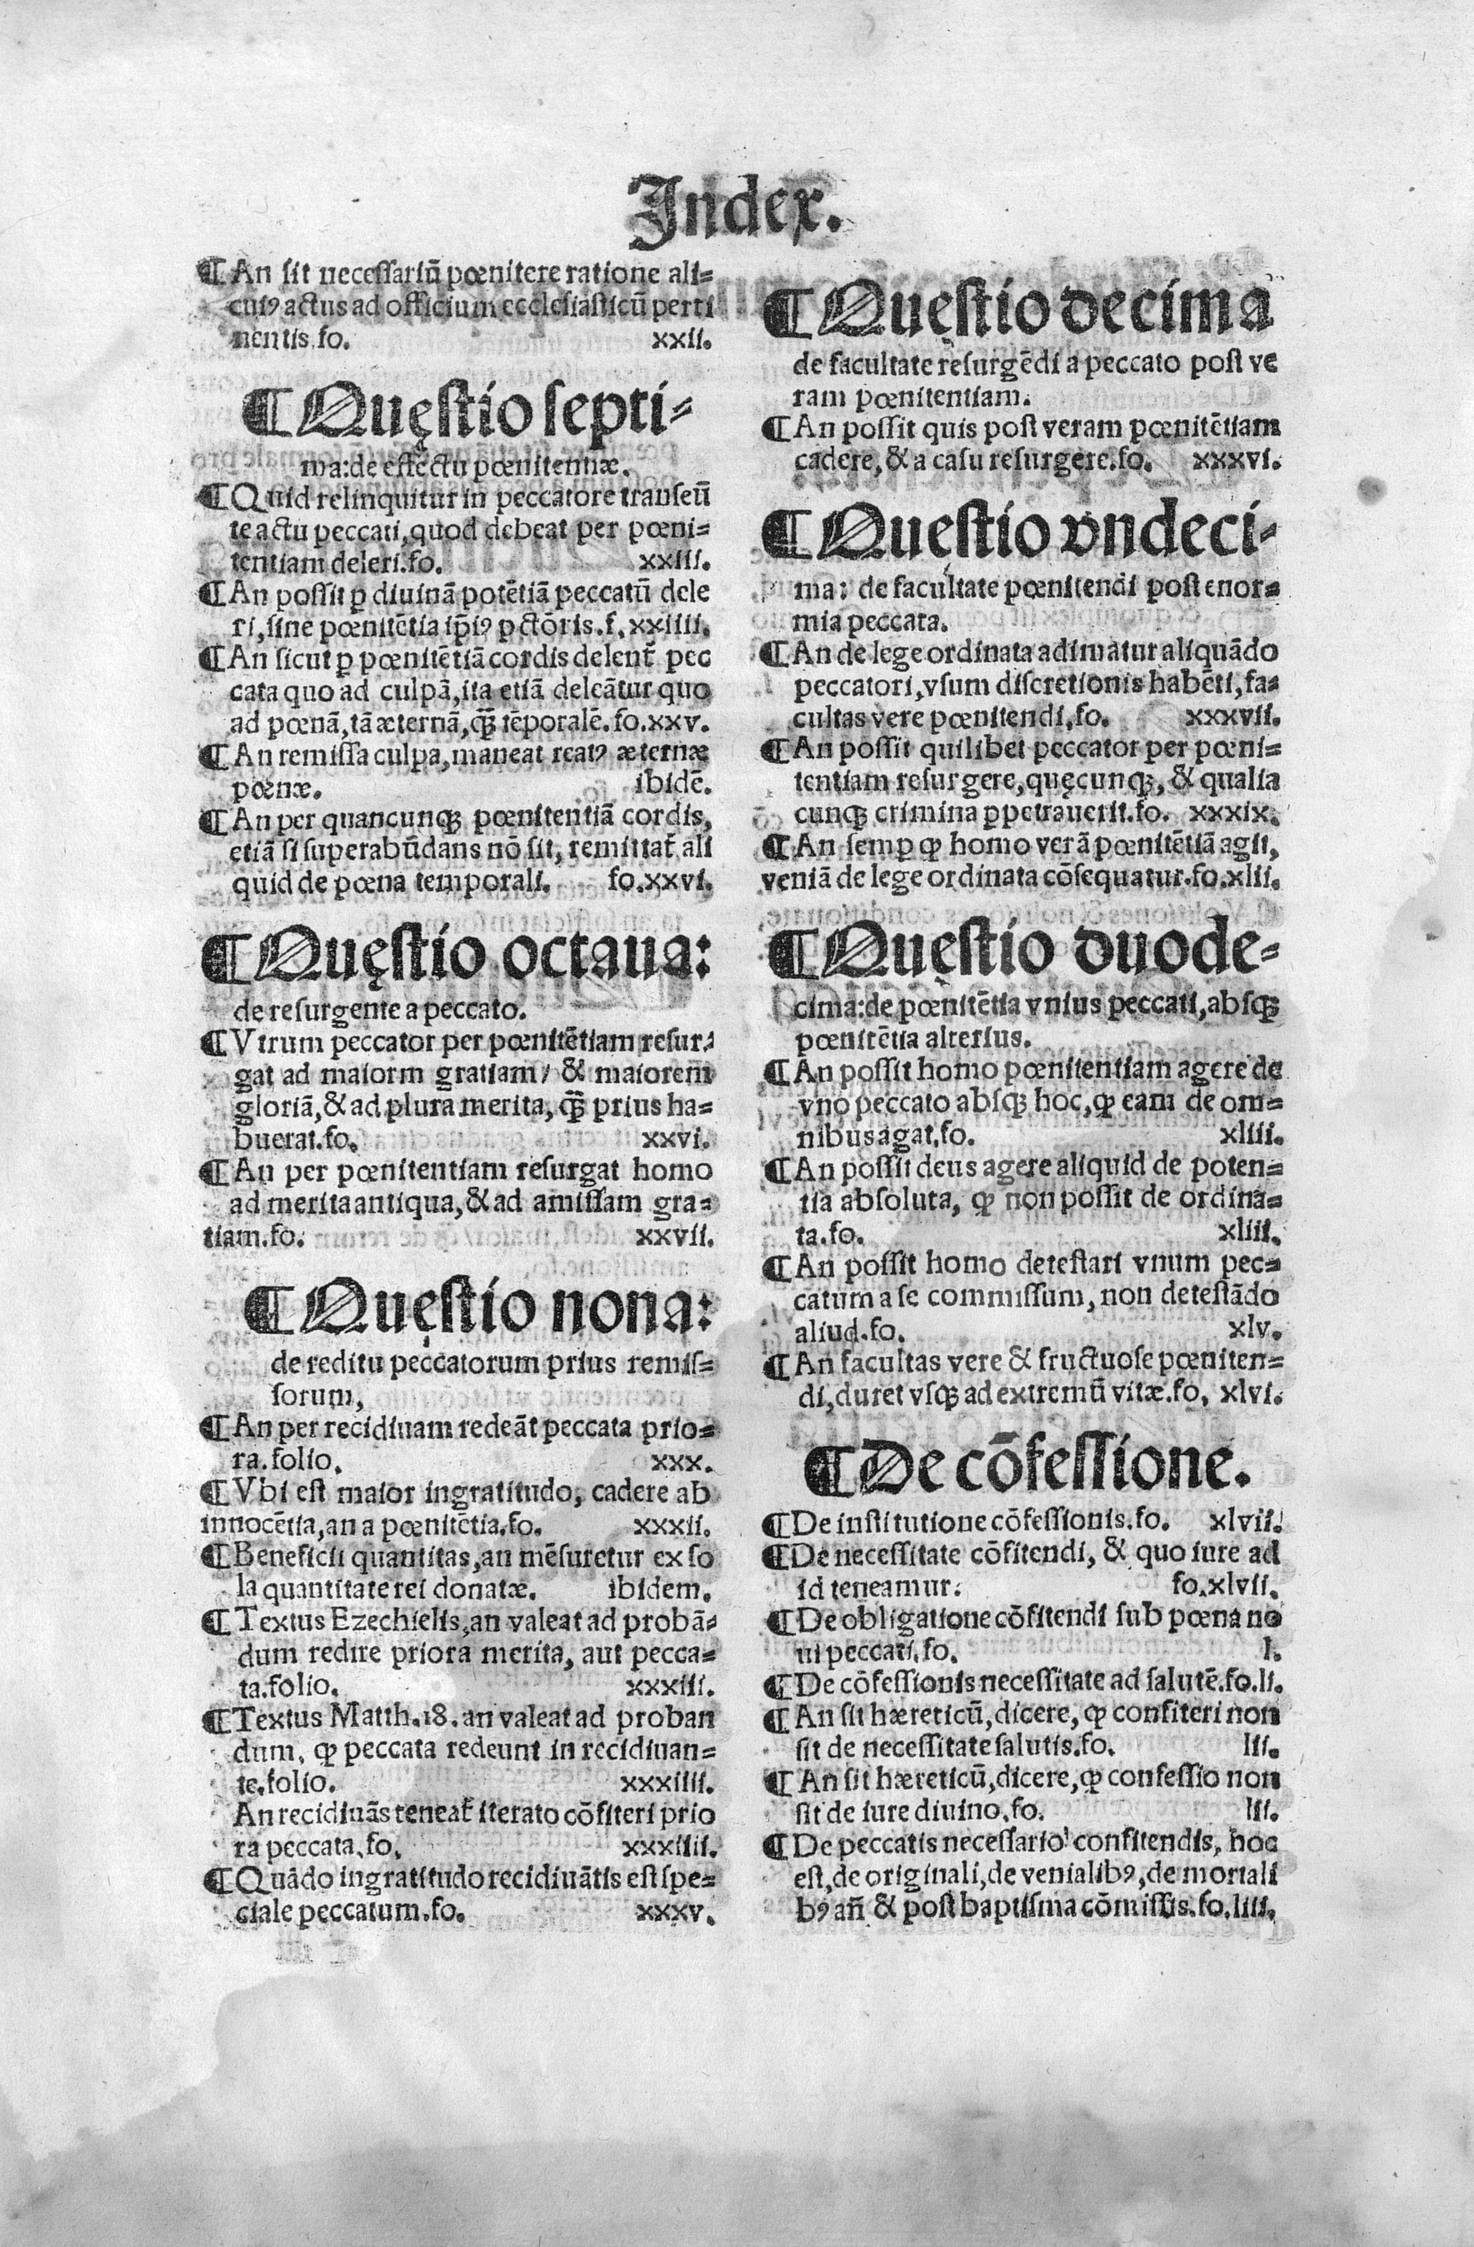 Index.
¶An sit necessariū pœnitere ratione ali=
cuiꝰ actus ad officium ecclesiasticū perti
nentis.fo. xxii.
¶Quęstio septi=
ma:de effectu pœnitentiæ.
¶Quid relinquitur in peccatore transeū
te actu peccati,quod debeat per pœni=
tentiam deleri.fo. xxiii.
¶An possit ꝑ divinā potētiā peccatū dele
ri,sine pœnitētia ip̄iꝰ pctōris.f.xxiiii.
¶An sicut ꝑ pœnitētiā cordis delent᷑ pec
cata quo ad culpā,ita etiā deleātur quo
ad pœnā,tā æternā,q̄ꝫ tēporalē.fo.xxv.
¶An remissa culpa,maneat reatꝰ æternæ
pœnæ. ibidē.
¶An per quancunqꝫ pœnitentiā cordis,
etiā si superabūdans nō sit, remittat᷑ ali
quid de pœna temporali. fo.xxvi.
¶Quęstio octaua:
de resurgente a peccato.
¶Vtrum peccator per pœnitētiam resur=
gat ad maiorm gratiam/ & maiorem
gloriā,&ad plura merita,q̄ꝫ prius ha=
buerat.fo. xxvi.
¶An per pœnitentiam resurgat homo
ad merita antiqua,&ad amissam gra=
tiam.fo. xxvii.
¶Quęstio nona:
de reditu peccatorum prius remis=
sorum,
¶An per recidiuam redeāt peccata prio=
ra.folio. xxx.
¶Vbi est maior ingratitudo, cadere ab
innocētia,an a pœnitētia.fo. xxxii.
¶Beneficii quantitas,an mēsuretur ex so
la quantitate rei donatæ. ibidem.
¶Textus Ezechielis,an valeat ad probā=
dum redire priora merita, aut pecca=
ta.folio. xxxiii.
¶Textus Matth.18.an valeat ad proban
dum, ꝙ peccata redeunt in recidiuan=
te.folio. xxxiiii.
An recidiuās teneat᷑ iterato cōfiteri prio
ra peccata.fo. xxxiiii.
¶Quādo ingratitudo recidiuātis est spe=
ciale peccatum.fo. xxxv.
¶Quęstio decima
de facultate resurgēdi a peccato post ve
ram pœnitentiam.
¶An possit quis post veram pœnitētiam
cadere,&a casu resurgere.fo. xxxvi.
¶Quęstio vndeci=
ma: de facultate pœnitendi post enor=
mia peccata.
¶An de lege ordinata adimatur aliquādo
peccatori,vsum discretionis habēti,fa=
cultas vere pœnitendi,fo. xxxvii.
¶An possit quilibet peccator per pœni=
tentiam resurgere,quęcunqꝫ, & qualia
cunqꝫ crimina ꝑpetrauerit.fo. xxxix.
¶An semꝑ ꝙ homo verā pœnitētiā agit,
veniā de lege ordinata cōsequatur.fo.xlii.
¶Quęstio duode=
cima:de pœnitētia vnius peccati,absqꝫ
pœnitētia alterius.
¶An possit homo pœnitentiam agere de
vno peccato absqꝫ hoc,ꝙ eam de om=
nibus agat.fo. xliii.
¶An possit deus agere aliquid de poten=
tia absoluta, ꝙ non possit de ordina=
ta.fo. xliii.
¶An possit homo detestari vnum pec=
catum a se commissum, non detestādo
aliud.fo. xlv.
¶An facultas vere & fructuose pœniten=
di,duret vsqꝫ ad extremū vitæ.fo, xlvi.
¶De cōfessione.
¶De institutione cōfessionis.fo. xlvii.
¶De necessitate cōfitendi, & quo iure ad
id teneamur. fo.xlvii.
¶De obligatione cōfitendi sub pœna no
ui peccati.fo. l.
¶De cōfessionis necessitate ad salutē.fo.li.
¶An sit hæreticū,dicere, ꝙ confiteri non
sit de necessitate salutis.fo. lii.
¶An sit hæreticū,dicere,ꝙ confessio non
sit de iure diuino.fo. lii.
¶De peccatis necessario confitendis, hoc
est,de originali,de venialibꝰ,de mortali
bꝰ añ & post baptisma cōmissis.fo.liii.